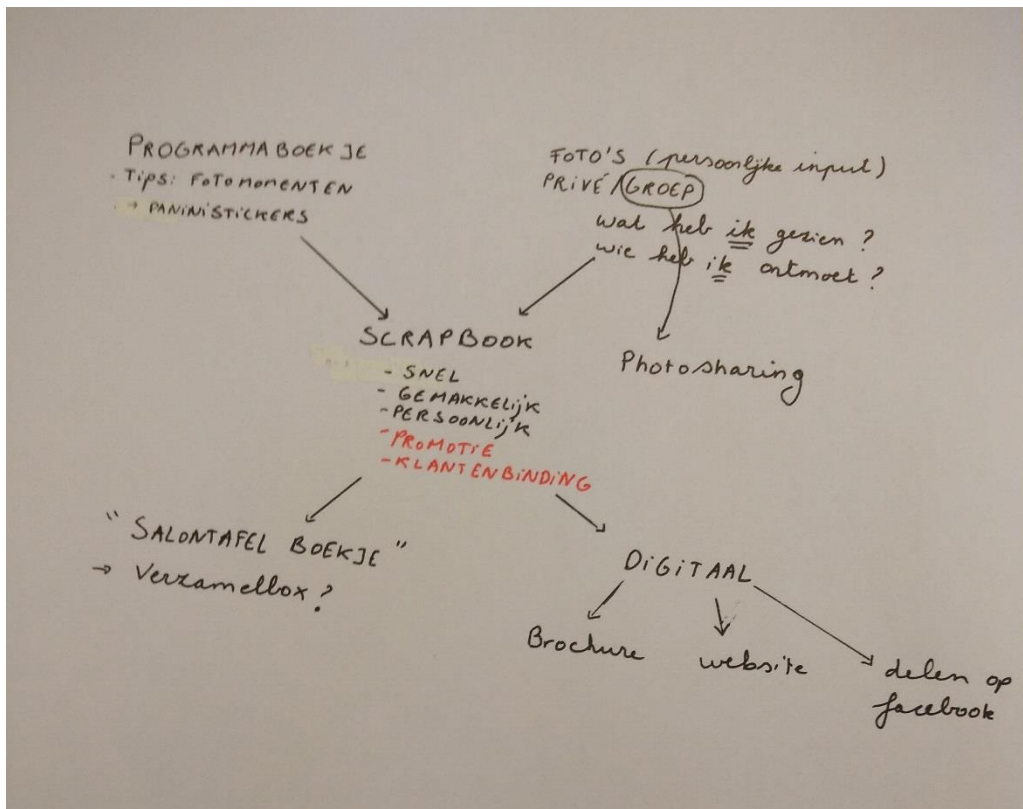 PROGRAMMABOEKJE
- Tips: FOTOMOMENTEN
→ PANINISTICKERS
FOTO'S (persoonlijke input)
PRIVÉ/GROEP
wat heb ik gezien?
wie heb ik ontmoet?
SCRAPBOOK
- SNEL
- GEMAKKELIJK
- PERSOONLIJK
- PROMOTIE
- KLANTENBINDING
Photosharing
"SALONTAFEL BOEKJE"
→ Verzamelbox?
DIGITAAL
Brochure
website
delen op
facebook